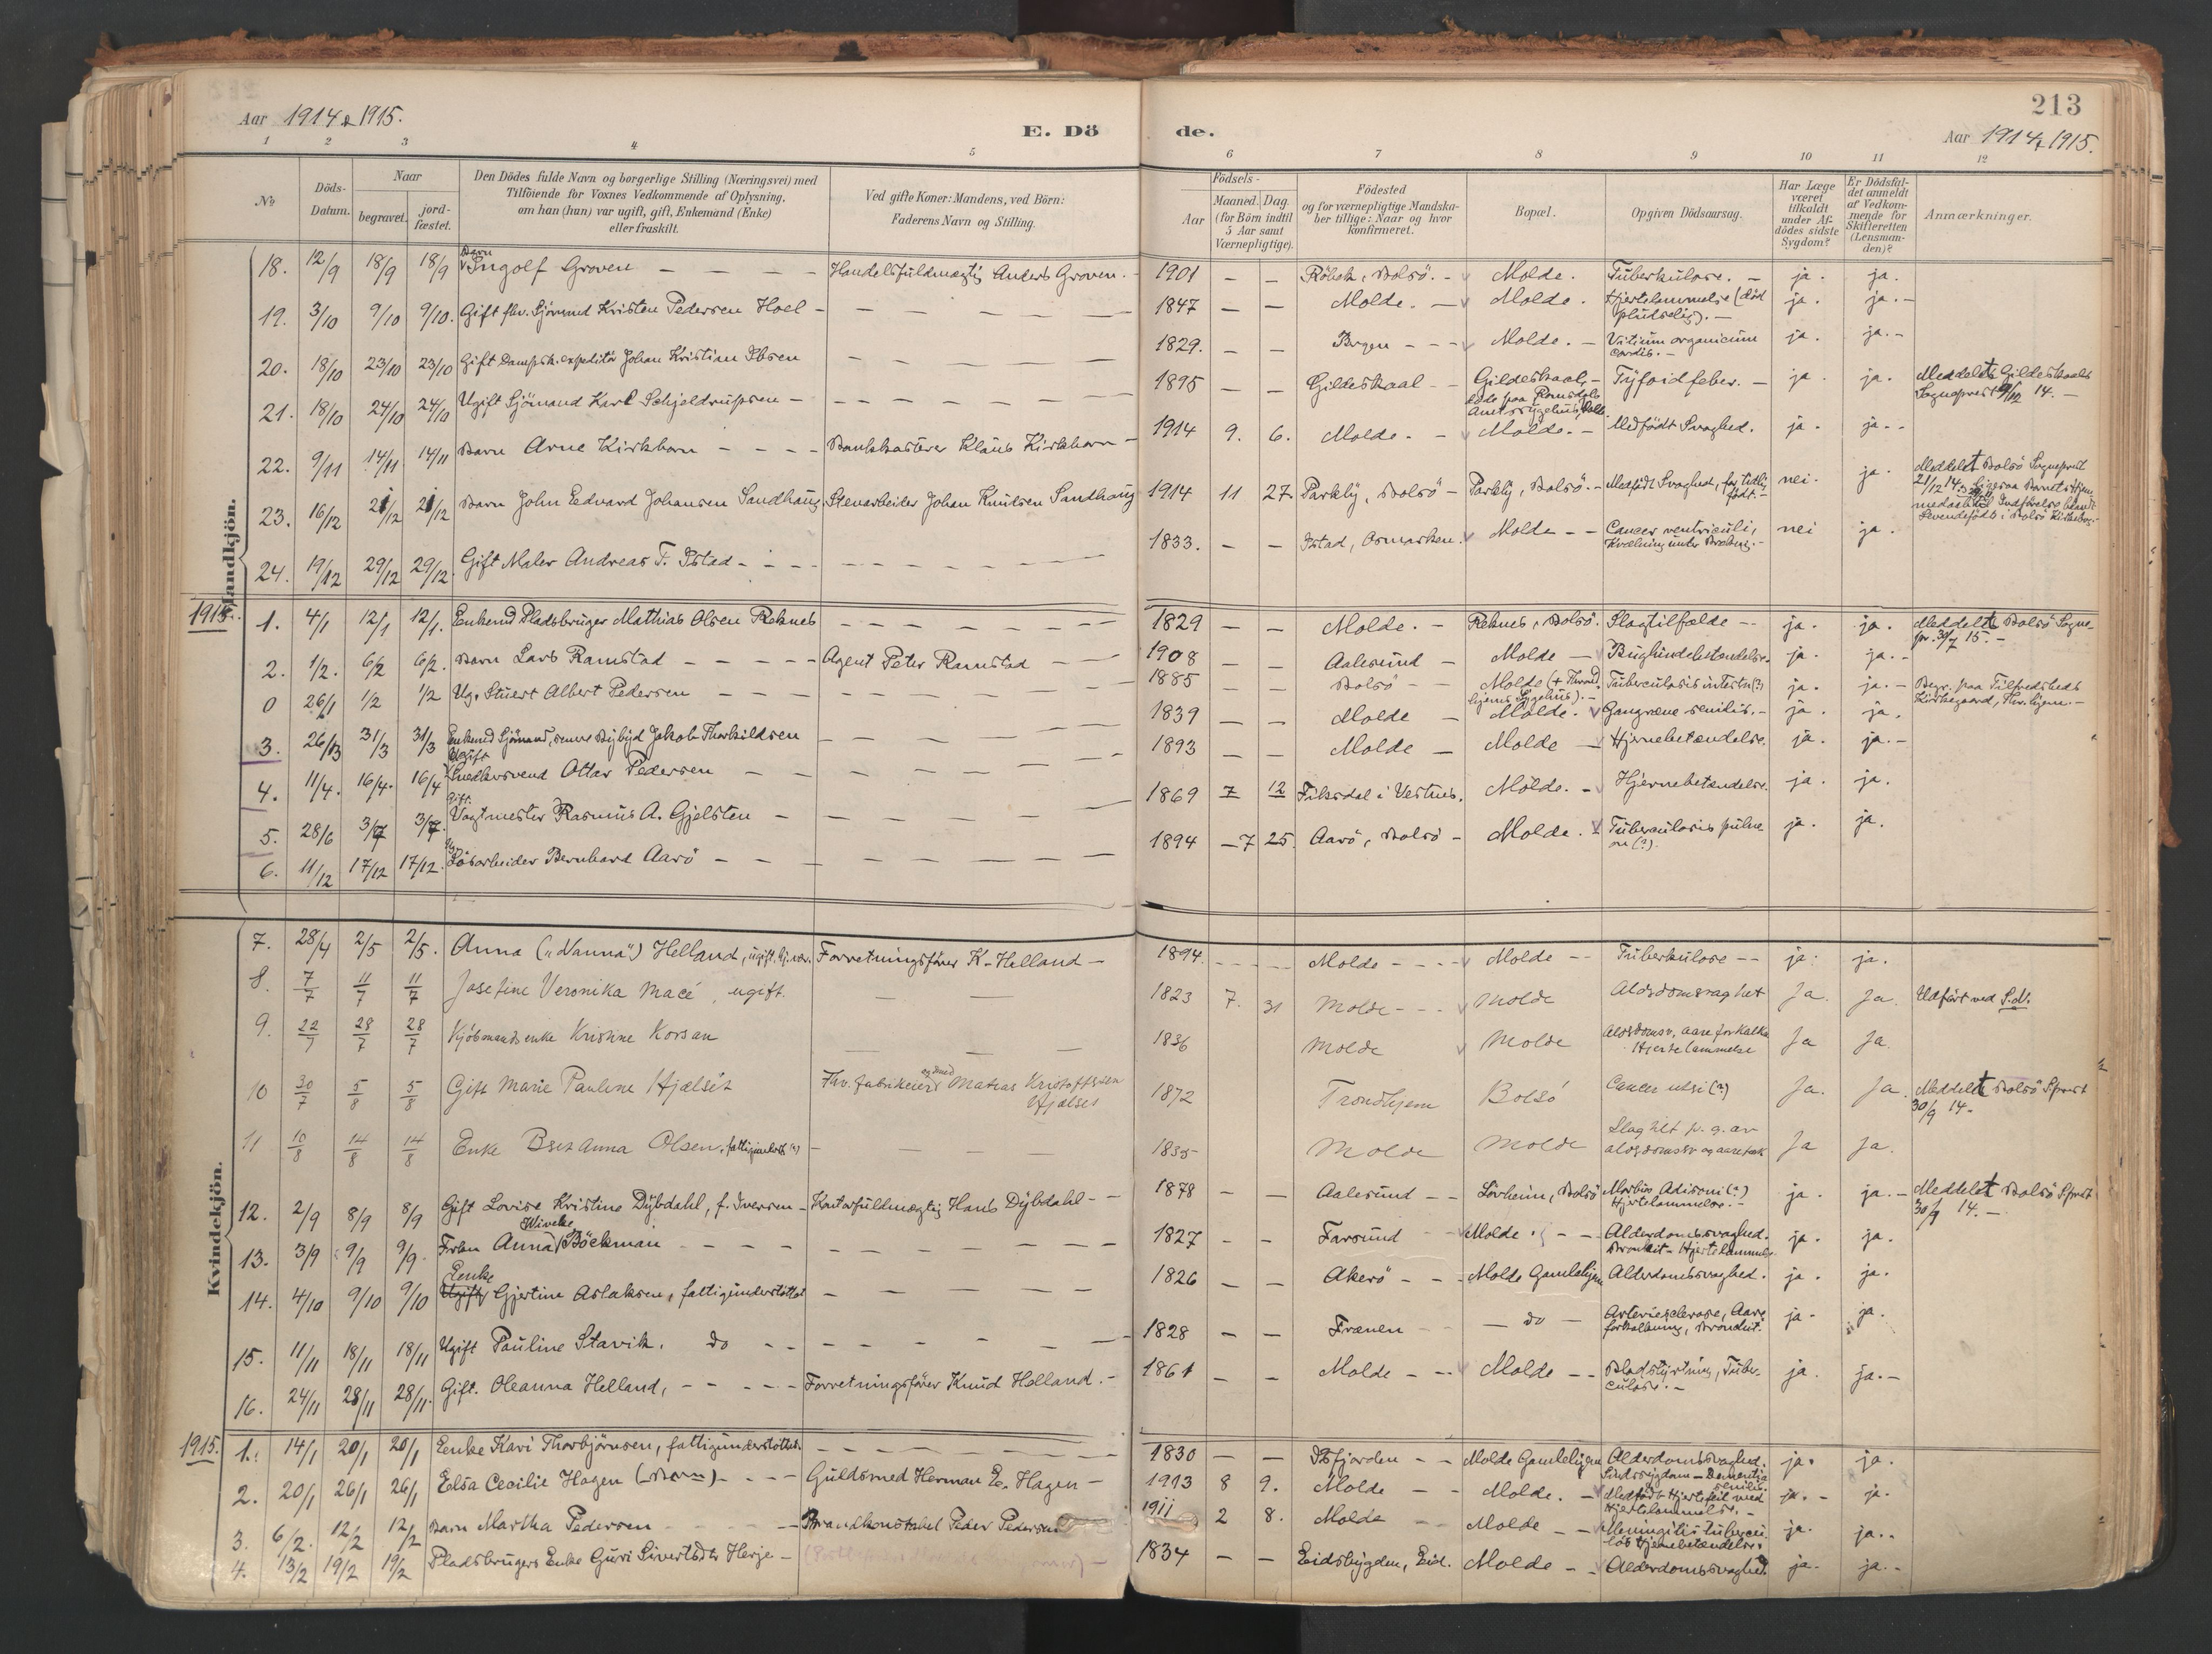 213
Aar 1914 & 1915.
E. Dö
de.
Aar 1914 & 1915.
1 2 3 4 5 6 7 8 9 10 11 12
No
Döds-
Datum.
Naar
begravet.
jord-
fæstet.
Den Dödes fulde Navn og borgerlige Stilling (Næringsvei) med
Tilföiende for Voxnes Vedkommende af Oplysning,
om han (hun) var ugift, gift, Enkemand (Enke)
eller fraskilt.
Ved gifte Koner: Mandens, ved Börn:
Faderens Navn og Stilling.
Födsels-
Aar
Maaned. Dag
(for Börn indtil
5 Aar samt
Værnepligtige).
Födested
og for værnepligtige Mandska-
ber tillige: Naar og hvor
konfirmeret.
Bopæl.
Opgiven Dödsaarsag.
Har Læge
været
tilkaldt
under Af-
dödes sidste
Sygdom?
Er Dödsfal-
det anmeldt
af Vedkom-
mende for
Skifteretten
(Lensman-
den)?
Anmærkninger.
Mandkjön.
18. 12/9 18/9 18/9 Barn Ingolf Groven - - - - Handelsfuldmægtig Anders Groven. 1901 - - Röbek, Bolsö. - Molde. Tuberkulose. - ja. ja.
19. 3/10 9/10 9/10. Gift fhv. Sjömand Kristen Pedersen Hoel - 1847 - - Molde. - Molde. Hjertelammelse (död
pludselig). - ja. ja. -
20. 18/10 23/10 23/10 Gift Dampsk. expeditör Johan Kristian Ibsen 1829. - - Bergen - - - Molde. - Vitium organicum
cordis. - ja. ja. -
21. 18/10 24/10 24/10 Ugift Sjömand Karl Schjeldrupsen - 1895 - - Gildeskaal - - Gildeskaal, -
döde paa Romsdals
Amtssygehus, Molde Tyfoidfeber. - ja. ja. Meddelt Gildeskaals
Sogneprest 9/12 14. -
22. 9/11 14/11 14/11 Barn Arne Kirkhorn - - - - Bankkasserer Klaus Kirkhorn - 1914 9. 6. Molde. - Molde. - Medfödt Svaghed. ja. ja. -
23. 16/12 21/12 21/12 Barn John Edvard Johansen Sandhaug Stenarbeider Johan Knutsen Sandhaug 1914 11 27. Parkly, Bolsö - Parkly, Bolsö. - Medfödt Svaghed, for tidlig
födt. - nei. ja. Meddelt Bolsö Sogneprest
21/12 14.
24. 19/12 29/12 29/12. Gift Maler Andreas T. Istad - - - 1833. - - Istad, Osmarken. Molde - - Cancer ventriculi,
nei ja.
1915. 1. 4/1 12/1 12/1. Enkemd Pladsbruger Mathias Olsen Reknes 1829 - - Molde. - Reknes, Bolsö. Slagtilfælde - - ja. ja. Meddelt Bolsö Sogne-
pr. 31/7 15. -
2. 1/2. 6/2 6/2. Barn Lars Ramstad - - - - Agent Peter Ramstad 1908 - - Aalesund - Molde - Bughindebetændelse. ja. ja. -
0 26/1 1/2 1/2 Ug. Stuert Albert Pedersen 1885 - - Bolsö - - Molde (+ Thrond-
hjems Sygehus). - Tuberculosis intestin (?) ja. ja. - Begr. paa Tilfredsheds
Kirkegaard, Thr.hjem. -
3. 26/3 31/3 31/3 Enkemd Sjömand, senere Bybud Jakob Thorkildsen 1839 - - Molde - Molde. Gangræne senilis. - ja. ja.
4. 11/4. 16/4. 16/4 Ugift
Snedkersvend Ottar Pedersen 1893 - - Molde - Molde - Hjernebetændelse. ja. ja. -
5. 28/6 3/7 3/7. Gift.
Vagtmester Rasmus A. Gjelsten - 1869 7 12 Fiksdal i Vestnes. Molde. - Hjernebetændelse. ja. ja.
6. 11/12 17/12 17/12. Ug.
Lösarbeider Bernhard Aarö - 1894 7 25. Aarö, Bolsö - Molde. Tuberculosis pulmo-
on (?). ja. ja.
Kvindekjön.
7. 28/4 2/5 2/5. Anna („Nanna") Helland, ugift. Forretningsförer K. Helland - 1894. - - Molde - - - Molde - - Tuberkulose - - ja. ja.
8. 7/7 11/7 11/7 Josefine Veronika Macé, ugift. 1823 7. 31 Molde - - - Molde Alderdomssvaghet Ja. Ja. Udfört ved S.N.
9. 22/7 28/7 28/7 Kjöbmandsenke Kristine Korsan 1836 Molde Molde Alderdomsv. aareforkalka
Hjertelammelse Ja Ja.
10 30/7 5/8 5/8 Gift Marie Pauline Hjælset Fhv. fabrikeier Matias Kristoffersen
Hjælset 1872 Trondhjem Bolsö Cancer uteri (?) Ja. Ja. Meddelt Bolsö Sprest
30/9 14. -
11 10/8 14/8 14/8 Enke Anna Olsen, fattigunderst (?) 1835 Molde Molde Slag litt p. g. av
Ja Ja.
12. 2/9 8/9 8/9 Gift Lovise Kristine Dybdahl, f. Iversen - Kontorfuldmægtig Hans Dybdahl - - 1878 - - Aalesund - - Lövheim, Bolsö Morbus Adisoni (?)
Hjertelammelse. - ja. ja. - Meddelt Bolsö Sprest
30/9 14. -
13. 3/9 9/9 9/9. Frkn Anna Wiveke Böckman - - - 1827 - - Farsund Molde. - - Alderdomssvaghed.
Bronkit - Hjertelammelse ja. ja.
14. 4/10 9/10 9/10 Enke Gjertine Aslaksen, fattigunderstöttet 1826 - - Akerö - - - Molde Gamlehjem Alderdomssvaghed. ja. ja.
15. 11/11 18/11 18/11 Ugift Pauline Stavik. do - - 1828 - - Frænen - do - Arteriesclerose, Aare-
forkalkning, Bronchit. ja. ja.
16. 24/11 28/11 28/11. Gift. Oleanna Helland, - - - - Forretningsförer Knud Helland. - 1861 - - Molde - - Molde - - Blodstyrtning, Tuber-
culose. - ja. ja. -
1915. 1. 14/1 20/1 20/1 Enke Kari Thorbjörnsen, fattigunderstöttet. 1830 - - Isfjorden - - Molde Gamlehjem Alderdomssvaghed.
Sindssygdom - Dementia
senilis. ja. ja.
2. 20/1 26/1 26/1 Elsa Cecilie Hagen (Barn) - - - Guldsmed Herman E. Hagen - 1913 8 9. Molde - - Molde. - Medfödt Hjertefeil med
Hjertelammelse. - ja. - ja.
3. 6/2. 12/2 12/2 Barn Martha Pedersen Brandkonstabel Peder Pedersen 1911 2 8. Molde - - Molde - - Meningitis tubercu-
lös Hjernebetændelse. ja. ja. -
4. 13/2 19/2 19/2 Pladsbrugers Enke Guri Sivertsdtr Herje - 1834 - - Eidsbygden, Eid. Molde - - Alderdomssvaghed ja. ja. -